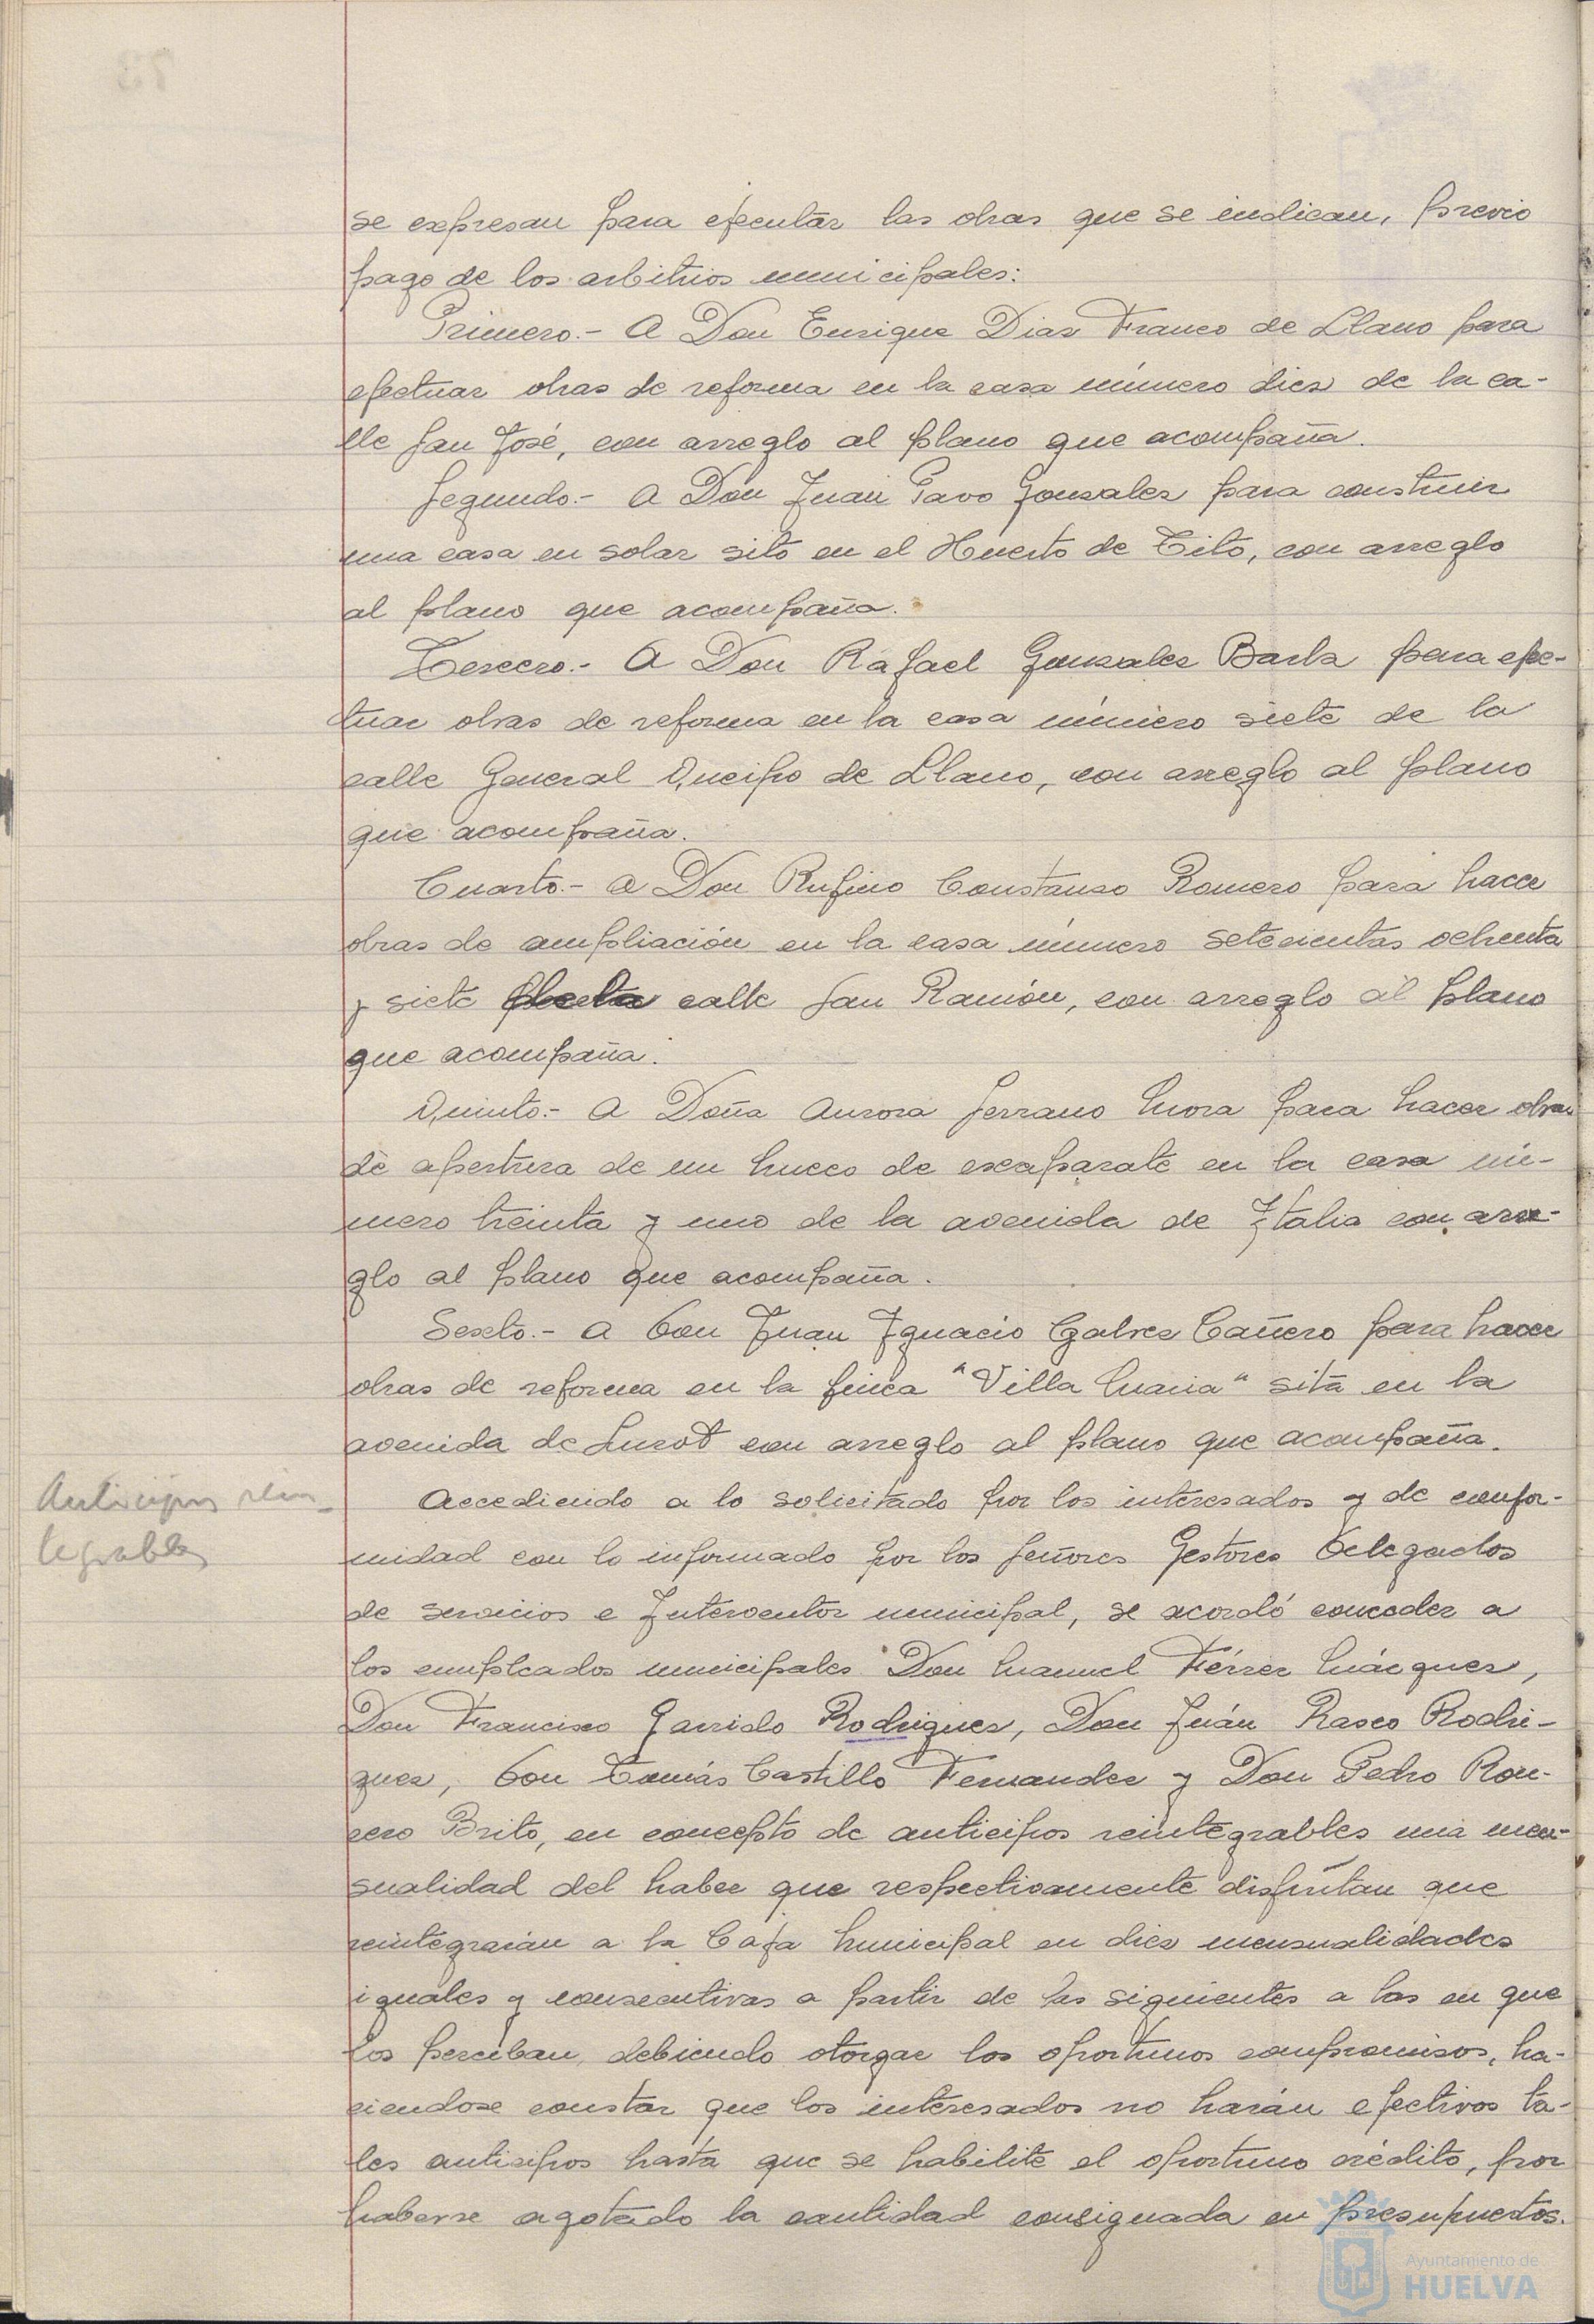 se expresan para ejecutar las obras que se indican, previo
pago de los arbitrios municipales:
Primero.- A Don Enrique Diaz Franco de Llano para
efectuar obras de reforma en la casa número diez de la ca-
lle San José, con arreglo al plano que acompaña.
Segundo.- A Don Juan Pavo Gonzalez para construir
una casa en solar sito en el Huerto de Tito, con arreglo
al plano que acompaña.
Tercero.- A Don Rafael Gonzalez Barba para efec-
tuar obras de reforma en la casa número siete de la
calle General Queipo de Llano, con arreglo al plano
que acompaña.
Cuarto.- A Don Rufino Constanzo Romero para hacer
obras de ampliación en la casa número setecientas ochenta
y siete calle San Ramón, con arreglo al plano
que acompaña.
Quinto.- A Doña Aurora Serrano Mora para hacer obras
de apertura de un hueco de escaparate en la casa nú-
mero treinta y uno de la avenida de Italia con arre-
glo al plano que acompaña.
Sexto.- A Don Juan Ignacio Galvez Cañero para hacer
obras de reforma en la finca "Villa Maria" sita en la
avenida de con arreglo al plano que acompaña.
Anticipos rein-
tegrables
Accediendo a lo solicitado por los interesados y de confor-
midad con lo informado por los Señores Gestores Delegados
de servicios e Interventor municipal, se acordó conceder a
los empleados municipales Don Manuel Férrer Márquez,
Don Francisco Garrido Rodriguez, Don Juán Rasco Rodri-
guez, Don Tomás Castillo Fernandez y Don Pedro Rom-
ero Brito, en concepto de anticipos reintegrables una men-
sualidad del haber que respectivamente disfrutan que
reintegrarán a la Caja Municipal en diez mensualidades
iguales y consecutivas a partir de las siguientes a las en que
los perciban, debiendo otorgar los oportunos compromisos, ha-
ciendose constar que los interesados no harán efectivos ta-
les anticipos hasta que se habilite el oportuno crédito, por
haberse agotado la cantidad consignada en presupuestos.
Ayuntamiento de
HUELVA